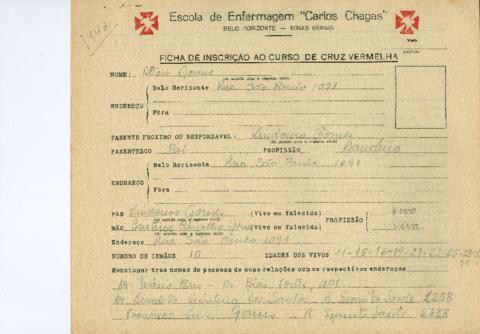 1942
Escola de Enfermagem "Carlos Chagas"
BELO HORIZONTE — MINAS GERAIS
Visto
FICHA DE INSCRIÇÃO AO CURSO DE CRUZ VERMELHA
NOME: Gomes
(De acordo com o registro civil)
Belo Horizonte Rua São Paulo 1091
ENDEREÇO
Fóra
PARENTE PROXIMO OU RESPONSAVEL: Lindouro Gomes
(De acordo com o registro civil)
PARENTESCO Pai PROFISSÃO Bancário
Belo Horizonte Rua São Paulo 1091
ENDEREÇO
Fóra
PAE Lindouro Gomes (Vivo ou falecido) PROFISSÃO vivo
(De acordo com o registro civil)
MÃE Carvalho Gomes (Vivo ou falecido) viva
(De acordo com o registro civil)
Endereço Rua São Paulo 1091
NUMERO DE IRMÃOS 10 IDADES DOS VIVOS 11-15-16-19-21-23-25-28-
Mencionar tres nomes de pessoas de suas relações com os respectivos endereços
Dr. - Av. Dias Fortes,
Dr. Benedito dos Santos - R. Espirito Santo 2258
Francisca Gomes - R. Espirito Santo